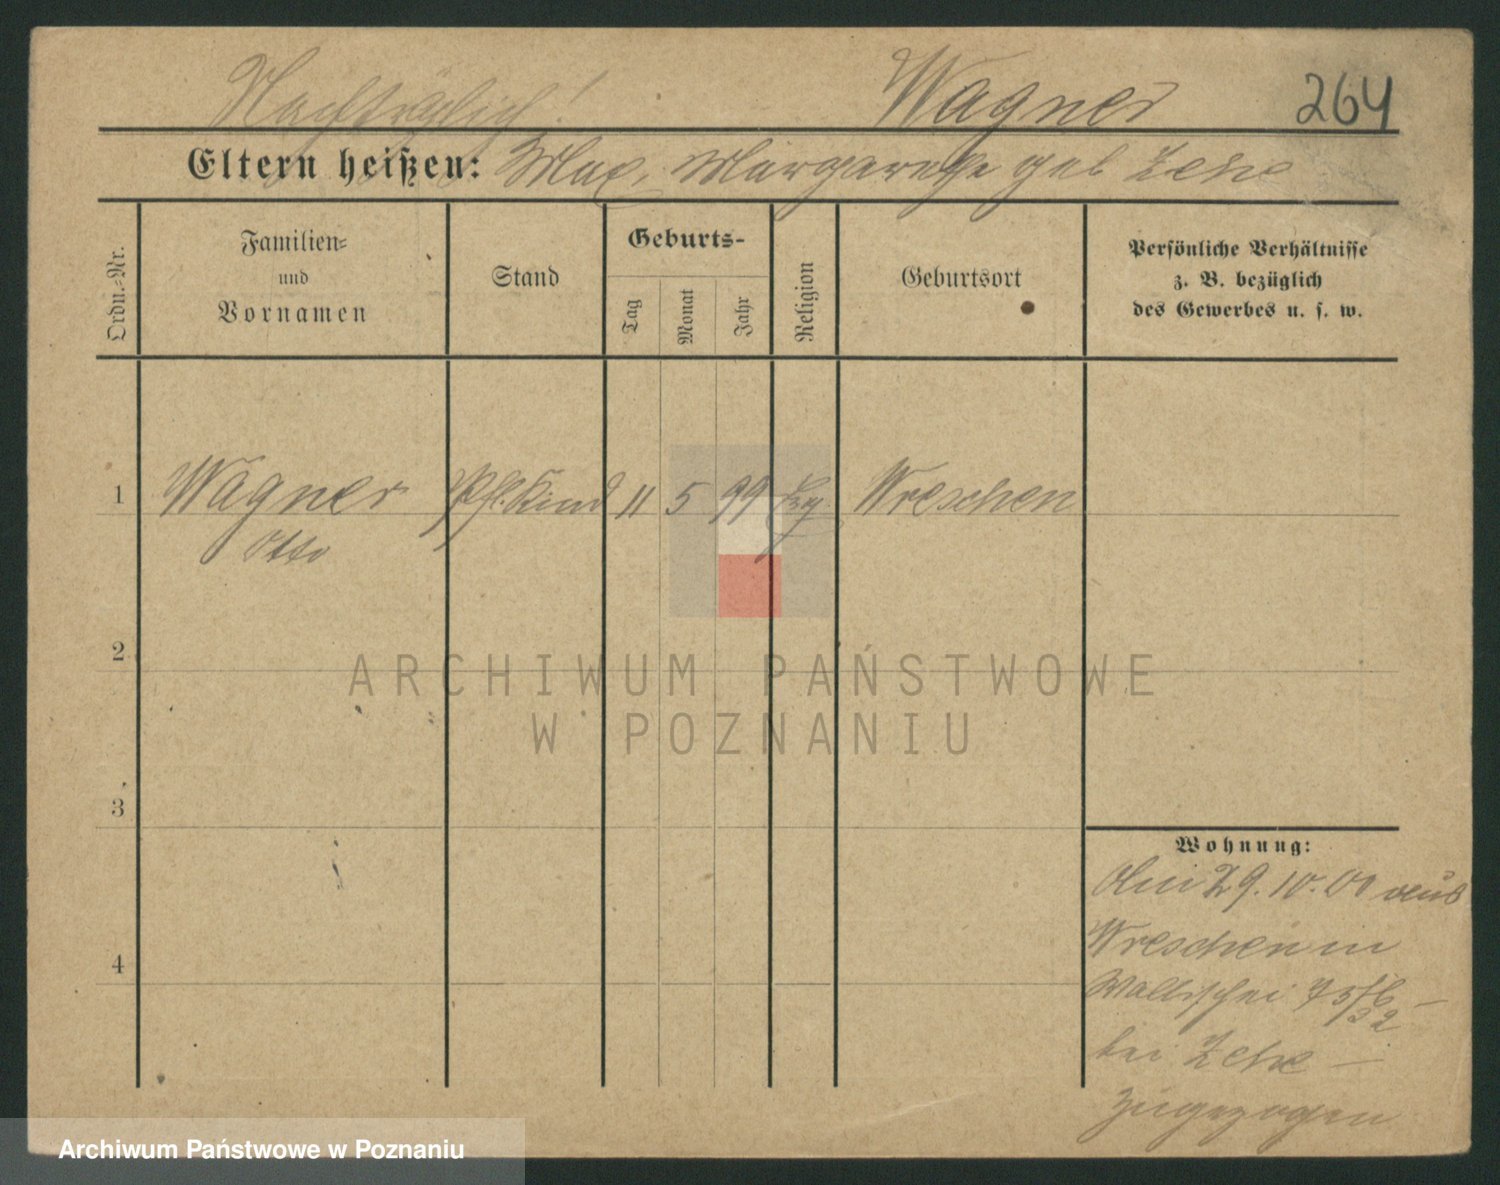 Nachträglich! Wagner 264
Eltern heißen: Max, Margarethe geb
Ordn.-Nr.
Familien-
und
Vornamen
Stand
Geburts-
Tag
Monat
Jahr
Religion
Geburtsort
Persönliche Verhältnisse
z. B. bezüglich
des Gewerbes u. s. w.
1 Wagner Pfl. Kind 11 5 99 Wreschen
Otto
2
3
4
Wohnung:
Am 29.10.00 aus
Wreschen in
Wallischei
bei
zugezogen
ARCHIWUM PAŃSTWOWE
W POZNANIU
Archiwum Państwowe w Poznaniu